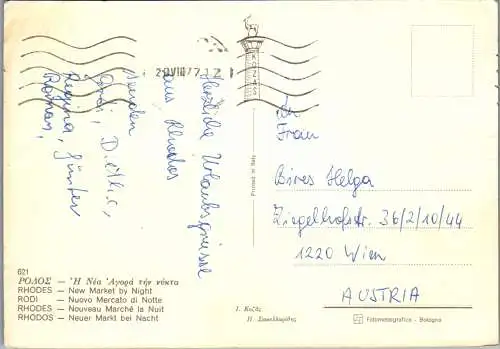 29 VIII 77 12
KOZAS
Herzliche Urlaubsgrüsse
aus Rhodos
senden
Gerdi, Dieter,
Regina, Günter
Roman,
An
Frau
Bires Helga
Ziegelhofstr. 36/2/10/44
1220 Wien
AUSTRIA
Printed in Italy
621
ΡΟΔΟΣ — Ἡ Νέα Ἀγορά τήν νύκτα
RHODES — New Market by Night
RODI — Nuovo Mercato di Notte
RHODES — Nouveau Marché la Nuit
RHODOS — Neuer Markt bei Nacht
Ι. Κοζᾶς
Fotometalgrafica - Bologna